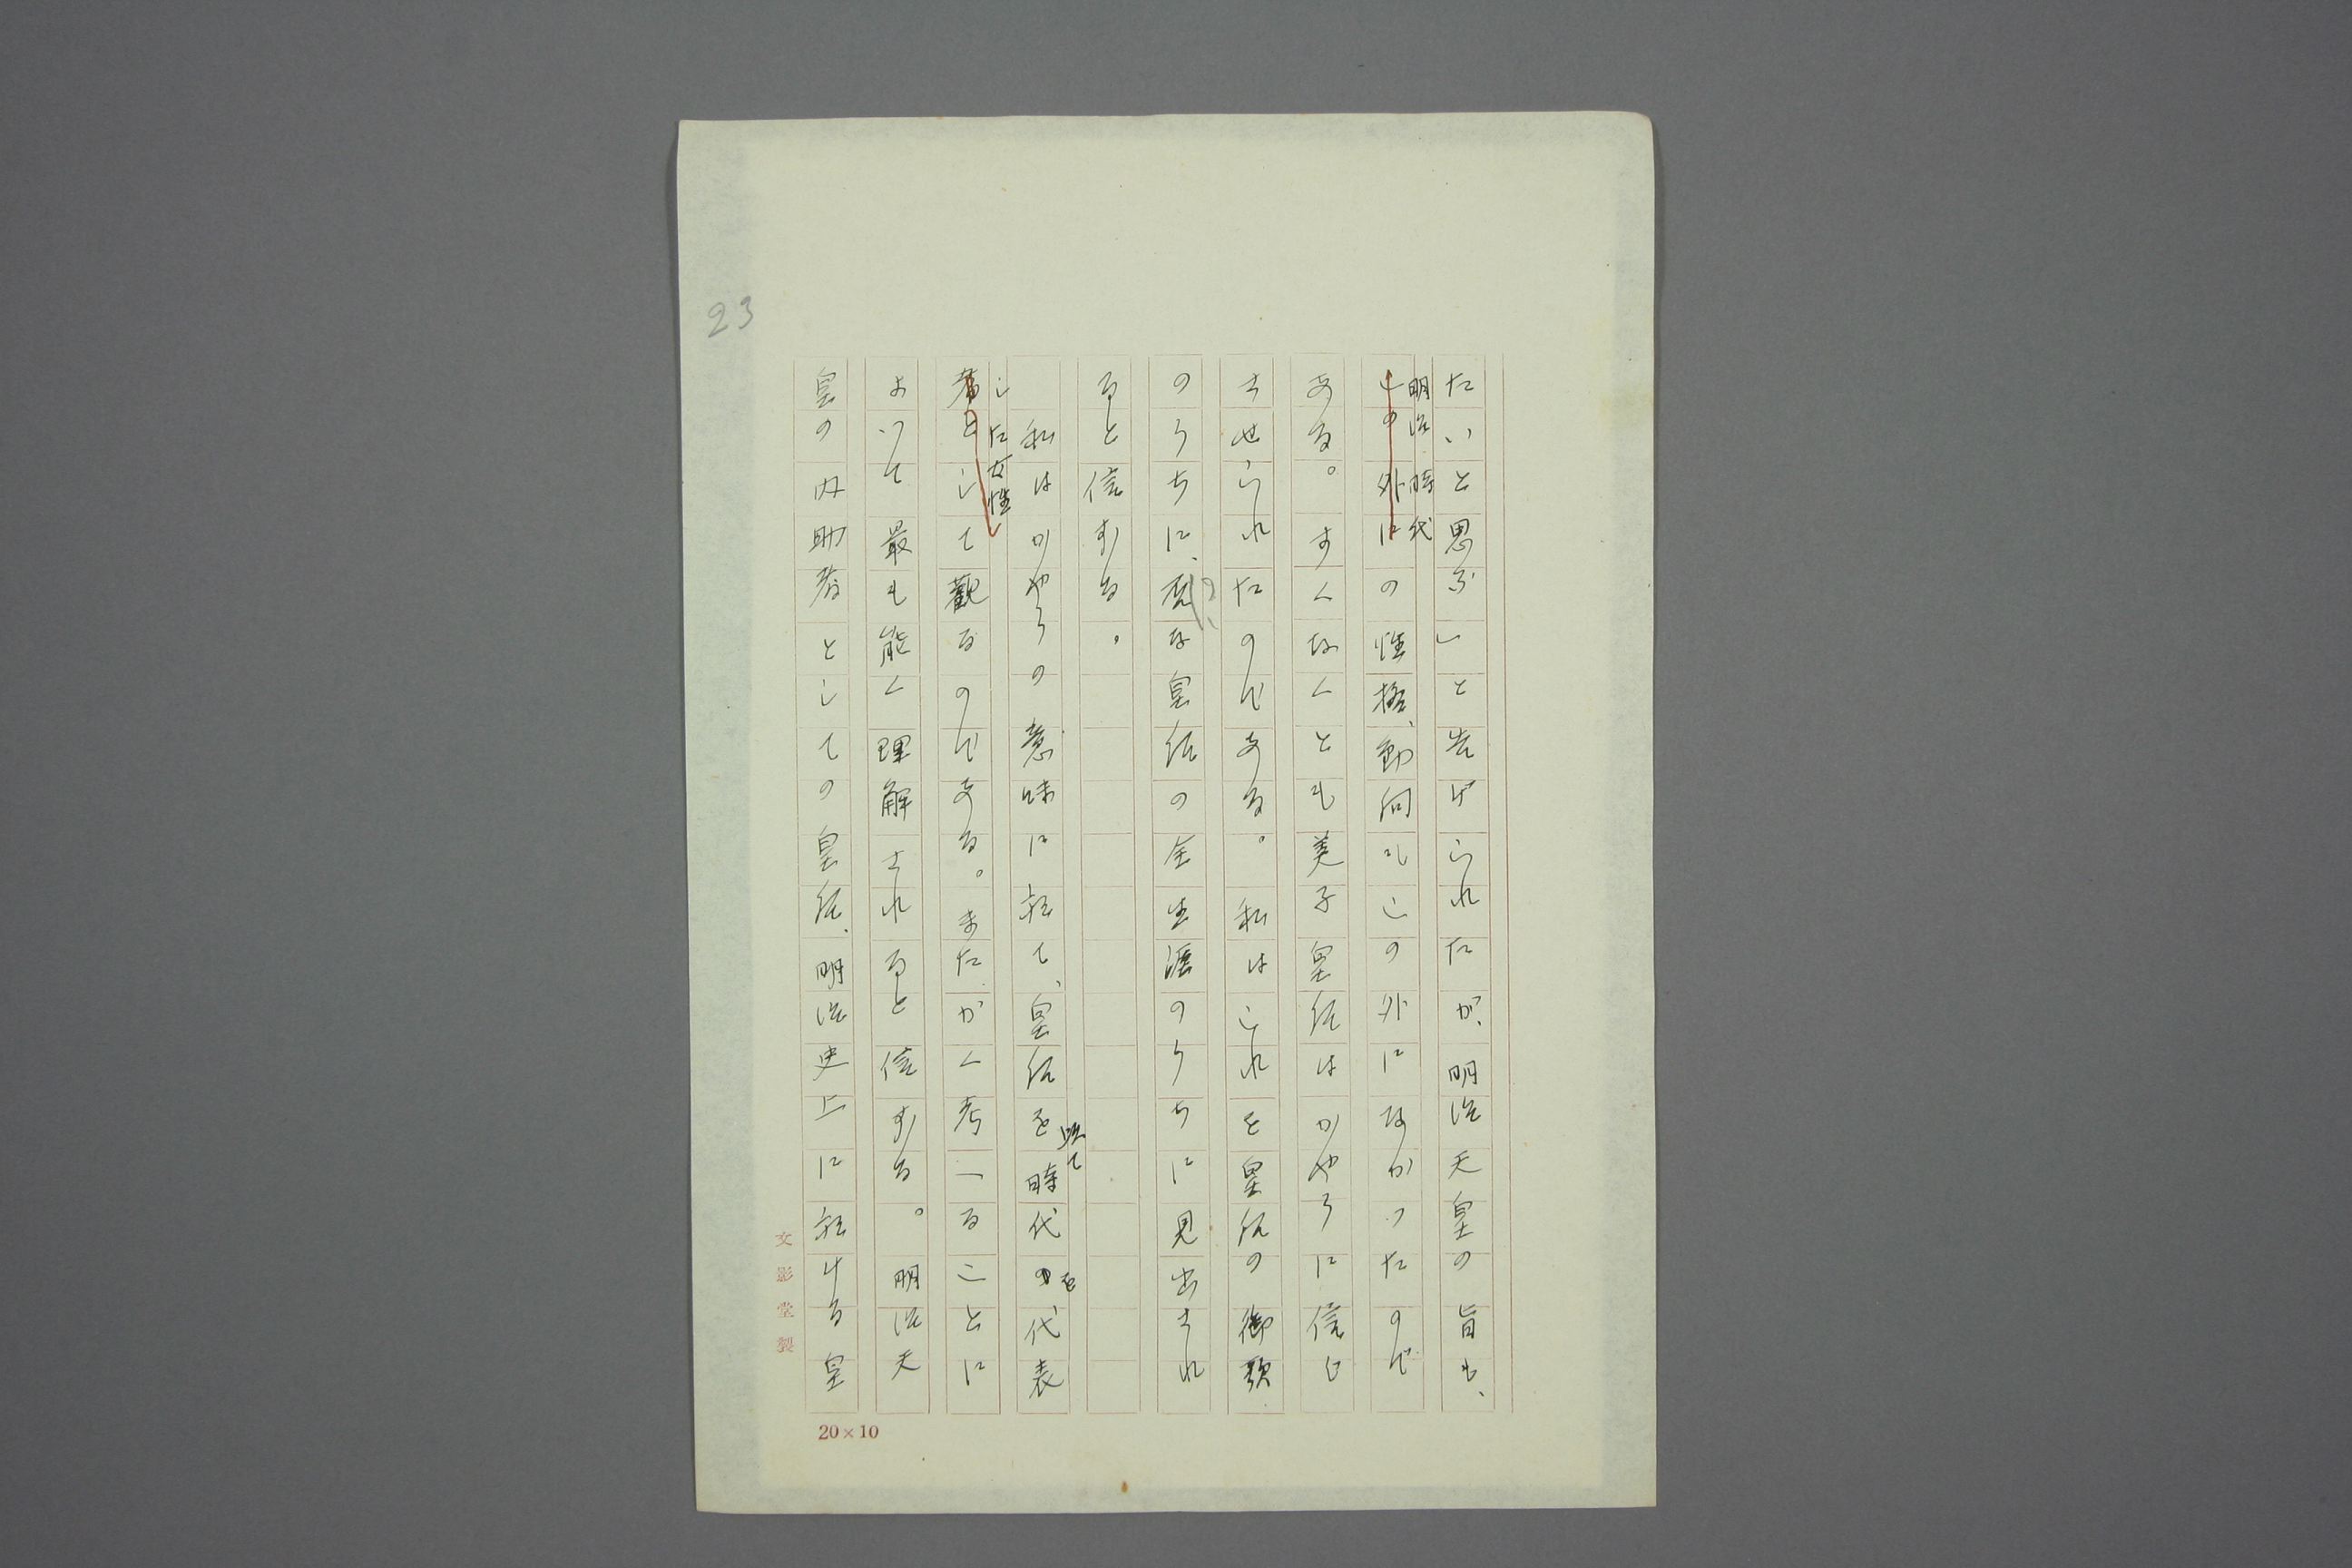 23
たいと思ふ」と告げられたが、明治天皇の旨も、
明治時代
この外にの性格、動向もこの外になかつたので
ある。すくなくとも美子皇后はかやうに信じ
させられたのである。私はこれを皇后の御歌
のうちに、な皇后の全生涯のうちに見出され
ると信ずる。
私はかやうの意味に於て、皇后を時代の代表
を
した女性
者として觀るのである。またかく考へることに
よつて最も能く理解されると信ずる。明治天
皇の内助者としての皇后、明治史上に於ける皇
文影堂製
20×10